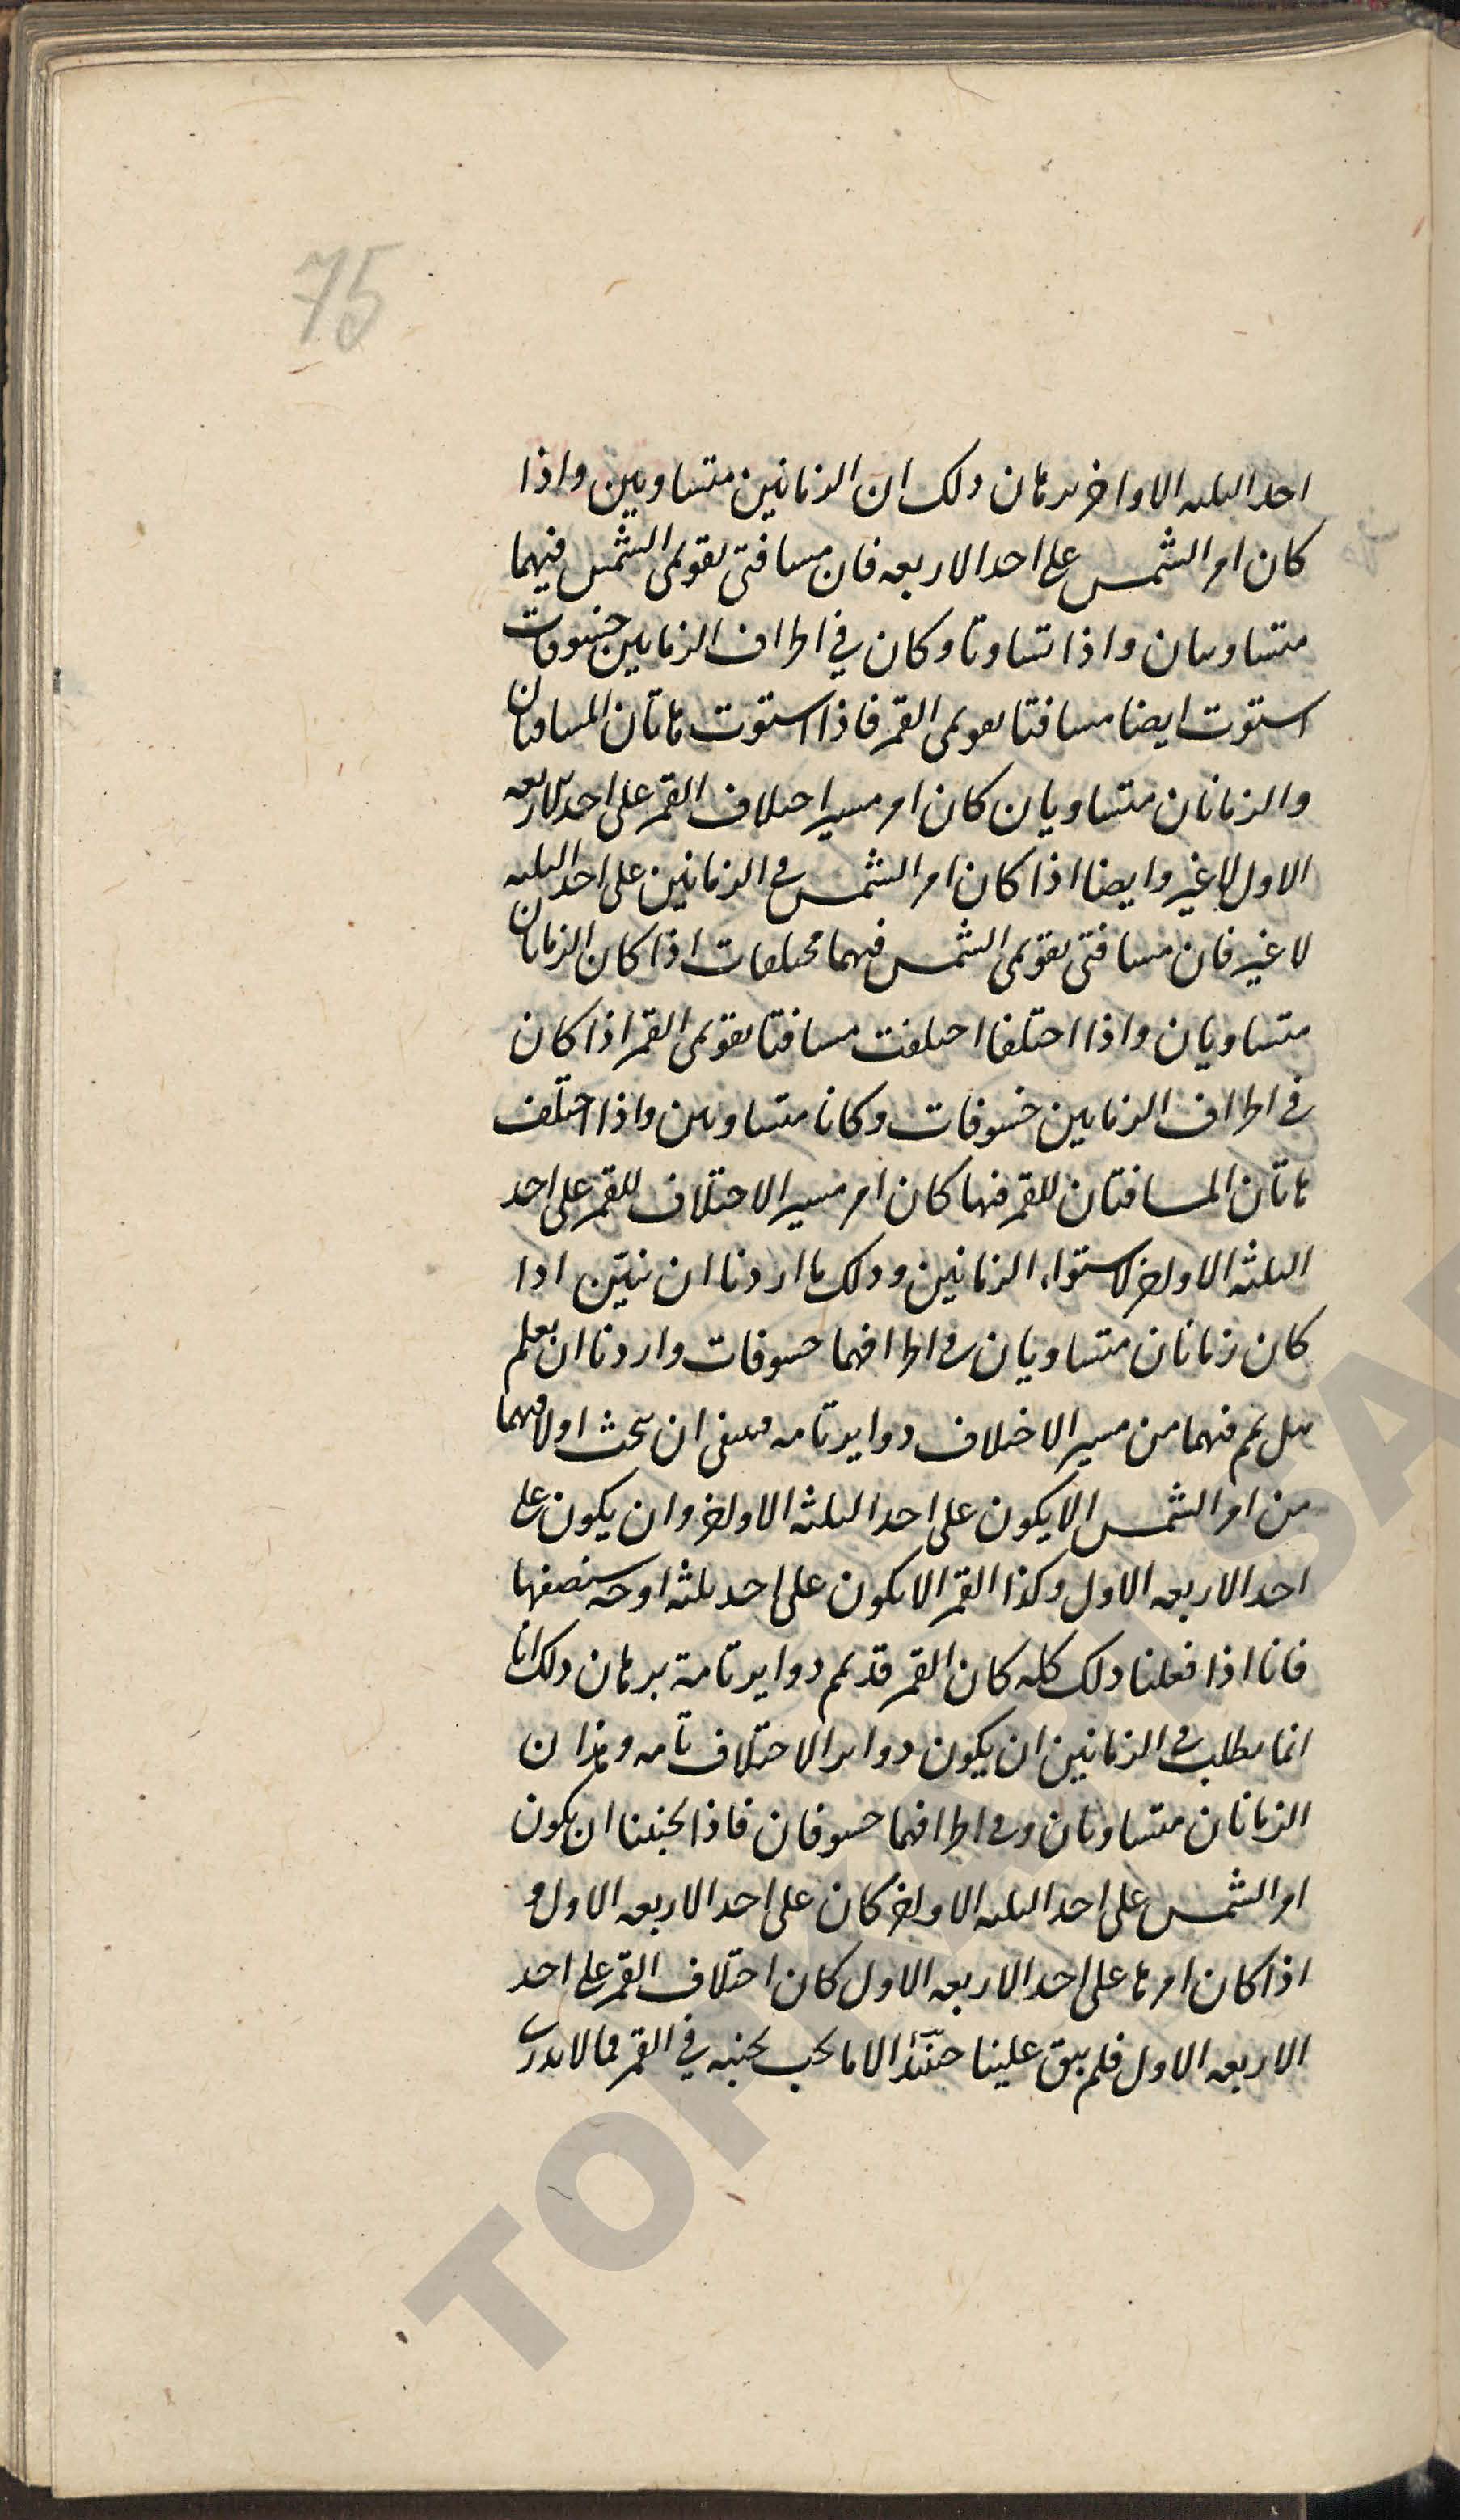 75
احد الثلثه الاواخر برهان ذلك ان الزمانين متساويين واذا
كان امر الشمس على احد الاربعه فان مسافتى تقويمى الشمس فيهما
متساويتان واذا تساوتا وكان في اطراف الزمانين خسوفات
استوت ايضا مسافتا تقويمى القمر فاذا استوت هاتان المسافتان
والزمانان متساويان كان امر مسير اختلاف القمر على احد الاربعه
الاول لا غير وايضا اذا كان امر الشمس في الزمانين على احد الثلثه
لا غير فان مسافتى تقويمى الشمس فيهما مختلفات اذا كان الزمانان
متساويان واذا اختلفا اختلفت مسافتا تقويمى القمر اذا كان
في اطراف الزمانين خسوفات وكانا متساويين واذا اختلف
هاتان المسافتان للقمر فيها كان امر مسير الاختلاف للقمر على احد
الثلثه الاواخر لاستواء الزمانين وذلك ما اردنا ان نبيّن اذا
كان زمانان متساويان في اطرافهما خسوفات واردنا ان نعلم
هل تم فيهما من مسير الاختلاف دواير تامه فينبغى ان نبحث اولا فيهما
من امر الشمس الا يكون على احد الثلثه الاواخر وان يكون على
احد الاربعه الاول وكذا القمر الا يكون على احد ثلثه اوجه سنصفها
فانا اذا فعلنا ذلك كله كان القمر قد تمم دواير تامة برهان ذلك انا
انما نطلب في الزمانين ان يكون دواير الاختلاف تامه وهذان
الزمانان متساويان وفي اطرافهما خسوفان فاذا تجنبنا ان يكون
امر الشمس على احد الثلثه الاواخر كان على احد الاربعه الاول و
اذا كان امرها على احد الاربعه الاول كان اختلاف القمر على احد
الاربعه الاول فلم يبق علينا حينئذ الا ما يجب تجنبه في القمر فما لا ندرى